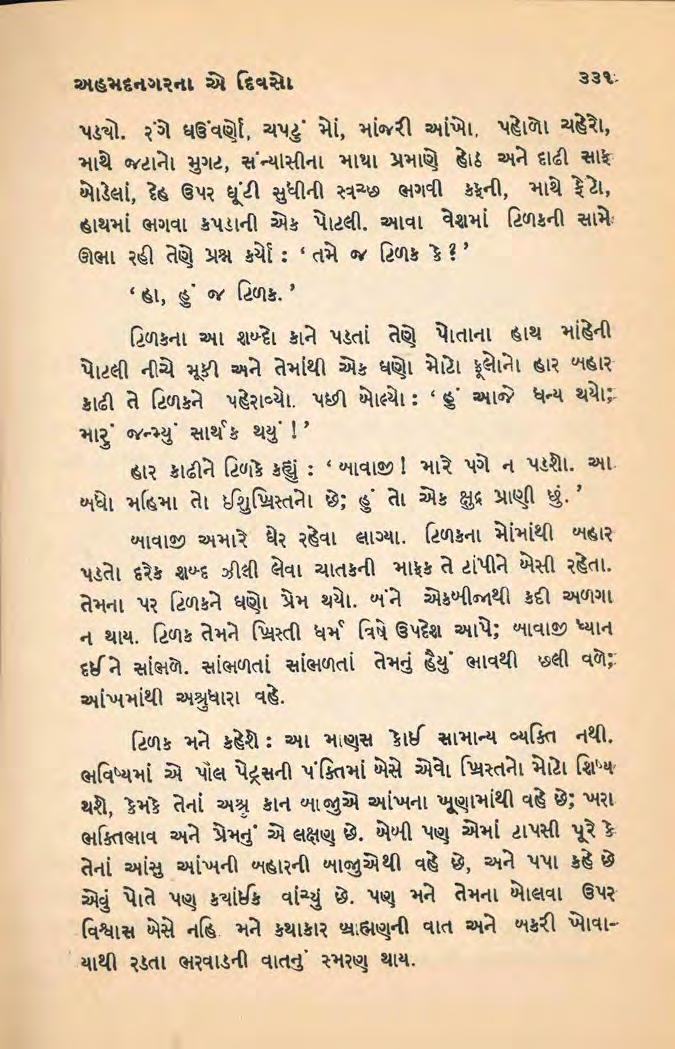 અહમદનગરના એ દિવસો ૩૩૧
પડ્યો. રંગે ઘઉંવર્ણો, ચપટું મોં, માંજરી આંખો, પહોળો ચહેરો,
માથે જટાનો મુગટ, સંન્યાસીના માથા પ્રમાણે હોઠ અને દાઢી સાફ
બોડેલાં, દેહ ઉપર ઘૂંટી સુધીની સ્વચ્છ ભગવી કફની, માથે ફેંટો,
હાથમાં ભગવા કપડાની એક પોટલી. આવા વેશમાં ટિળકની સામે
ઊભા રહી તેણે પ્રશ્ન કર્યો : ‘ તમે જ ટિળક કે ? ’
‘ હા, હું જ ટિળક. ’
ટિળકના આ શબ્દો કાને પડતાં તેણે પોતાના હાથ માંહેની
પોટલી નીચે મૂકી અને તેમાંથી એક ઘણો મોટો ફૂલોનો હાર બહાર
કાઢી તે ટિળકને પહેરાવ્યો. પછી બોલ્યો : ‘ હું આજે ધન્ય થયો;
મારું જન્મ્યું સાર્થક થયું ! ’
હાર કાઢીને ટિળકે કહ્યું : ‘ બાવાજી ! મારે પગે ન પડશો. આ
બધો મહિમા તો ઈશુખ્રિસ્તનો છે; હું તો એક ક્ષુદ્ર પ્રાણી છું. ’
બાવાજી અમારે ઘેર રહેવા લાગ્યા. ટિળકના મોંમાંથી બહાર
પડતો દરેક શબ્દ ઝીલી લેવા ચાતકની માફક તે ટાંપીને બેસી રહેતા.
તેમના પર ટિળકને ઘણો પ્રેમ થયો. બંને એકબીજાથી કદી અળગા
ન થાય. ટિળક તેમને ખ્રિસ્તી ધર્મ વિષે ઉપદેશ આપે; બાવાજી ધ્યાન
દઈને સાંભળે. સાંભળતાં સાંભળતાં તેમનું હૈયું ભાવથી છલી વળે;
આંખમાંથી અશ્રુધારા વહે.
ટિળક મને કહેશે : આ માણસ કોઈ સામાન્ય વ્યક્તિ નથી.
ભવિષ્યમાં એ પૌલ પેટ્રસની પંક્તિમાં બેસે એવો ખ્રિસ્તનો મોટો શિષ્ય
થશે, કેમકે તેનાં અશ્રુ કાન બાજુએ આંખના ખૂણામાંથી વહે છે; ખરા
ભક્તિભાવ અને પ્રેમનું એ લક્ષણ છે. બેબી પણ એમાં ટાપસી પૂરે કે
તેનાં આંસુ આંખની બહારની બાજુએથી વહે છે, અને પપા કહે છે
એવું પોતે પણ ક્યાંઈક વાંચ્યું છે. પણ મને તેમના બોલવા ઉપર
વિશ્વાસ બેસે નહિ. મને કથાકાર બ્રાહ્મણની વાત અને બકરી ખોવા-
યાથી રડતા ભરવાડની વાતનું સ્મરણ થાય.